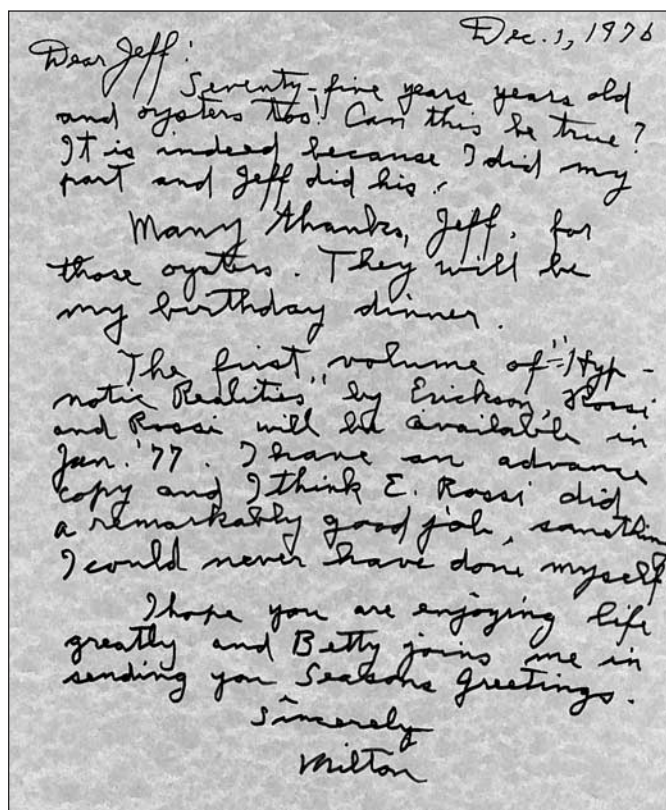 Dec. 1, 1976
Dear Jeff:
Seventy-five years years old
and oysters too! Can this be true?
It is indeed because I did my
part and Jeff did his.
Many thanks, Jeff, for
those oysters. They will be
my birthday dinner.
The first volume of "Hyp-
notic Realities" by Erickson, Rossi
and Rossi will be available in
Jan. '77. I have an advance
copy and I think E. Rossi did
a remarkably good job, somethin
I could never have done myself
I hope you are enjoying life
greatly and Betty joins me in
sending you Seasons Greetings.
Sincerely
Milton